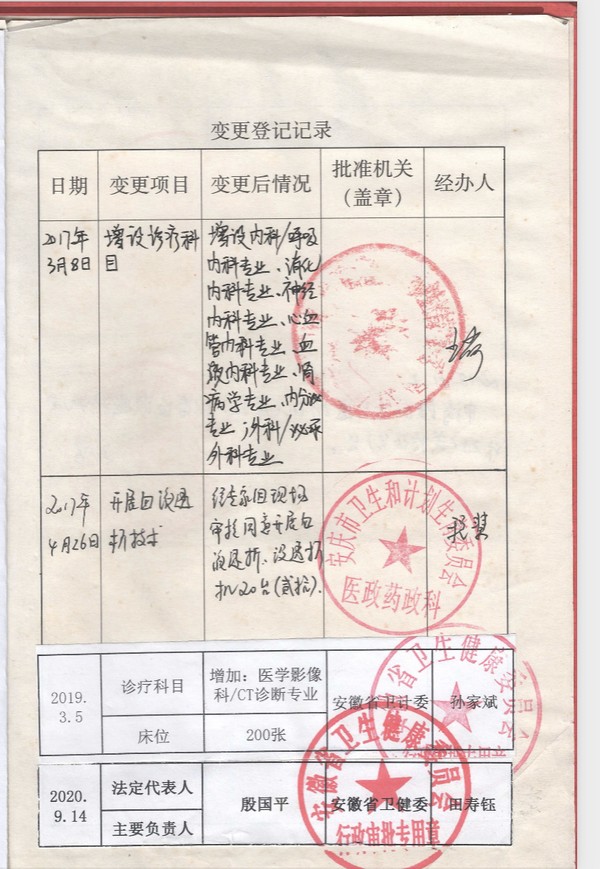 变更登记记录
日期 变更项目 变更后情况 批准机关（盖章） 经办人
2017年
3月8日
增设诊疗科
目
增设内科/呼吸
内科专业、消化
内科专业、神经
内科专业、心血
管内科专业、血
液内科专业、肾
病学专业、内分泌
专业；外科/泌尿
外科专业
2017年
4月26日
开展血液透
析技术
经专家组现场
审核同意开展血
液透析、设透析
机20台(贰拾).
安庆市卫生和计划生育委员会
医政药政科
2019.
3.5
诊疗科目
增加：医学影像
科/CT诊断专业
床位
200张
安徽省卫计委
孙家斌
省卫生健康委员会
2020.
9.14
法定代表人
主要负责人
殷国平
安徽省卫健委
田寿钰
安徽省卫生健康委员会
行政审批专用章